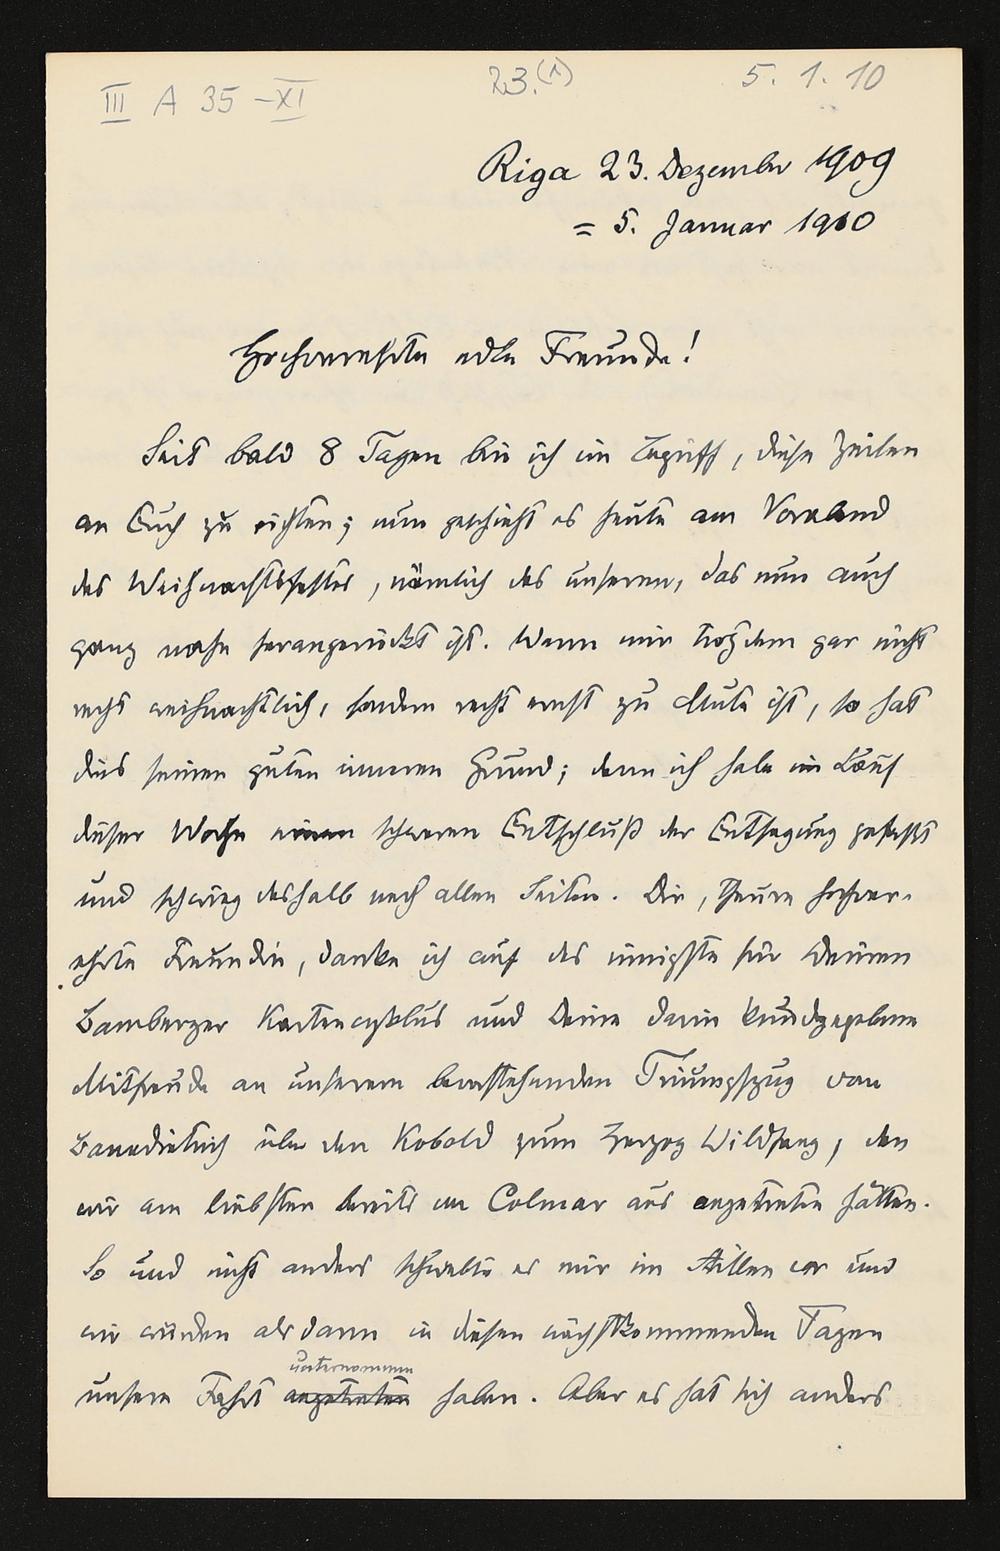 III A 35 – XI
23.(1)
5. 1. 10
Riga 23. Dezember 1909
= 5. Januar 1910
Hochverehrte edle Freunde!
Seit bald 8 Tagen bin ich im Begriff, diese Zeilen
an Euch zu richten; nun geschieht es heute am Vorabend
des Weihnachtsfestes, nämlich des unseren, das nun auch
ganz nahe herangerückt ist. Wenn mir trotzdem gar nicht
recht weihnachtlich, sondern recht ernst zu Mute ist, so hat
dies seinen guten inneren Grund; denn ich habe im Lauf
dieser Woche einen schweren Entschluß der Entsagung gefasst
und schwieg deshalb nach allen Seiten. Dir, theure hochver-
ehrte Freundin, danke ich auf das innigste für Deinen
Bamberger Kartencyklus und Deine darin kundgegebene
Mitfreude an unserem bevorstehenden Triumpfzug von
Banadietrich über den Kobold zum Herzog Wildfang, den
wir am liebsten bereits von Colmar aus angetreten hätten.
So und nicht anders schwebte es mir im Stillen vor und
wir würden alsdann in diesen nächstkommenden Tagen
unternommen
unsere Fahrt angetreten haben. Aber es hat sich anders